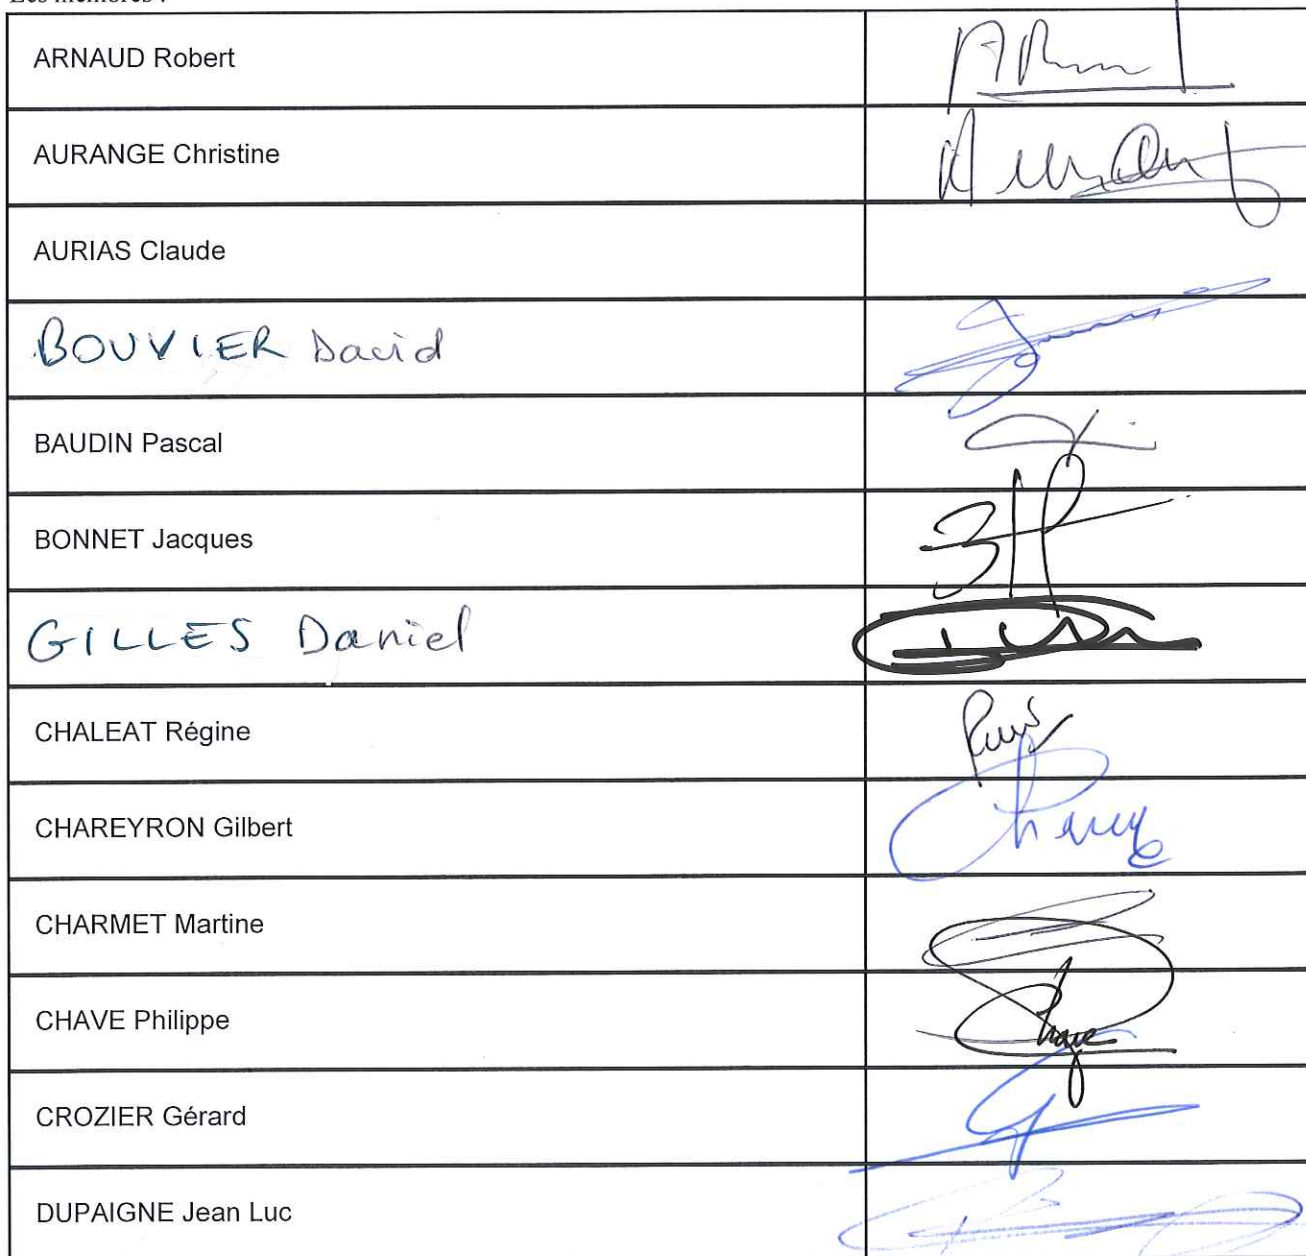 Les membres :
ARNAUD Robert
AURANGE Christine
AURIAS Claude
BOUVIER David
BAUDIN Pascal
BONNET Jacques
GILLES Daniel
CHALEAT Régine
CHAREYRON Gilbert
CHARMET Martine
CHAVE Philippe
CROZIER Gérard
DUPAIGNE Jean Luc